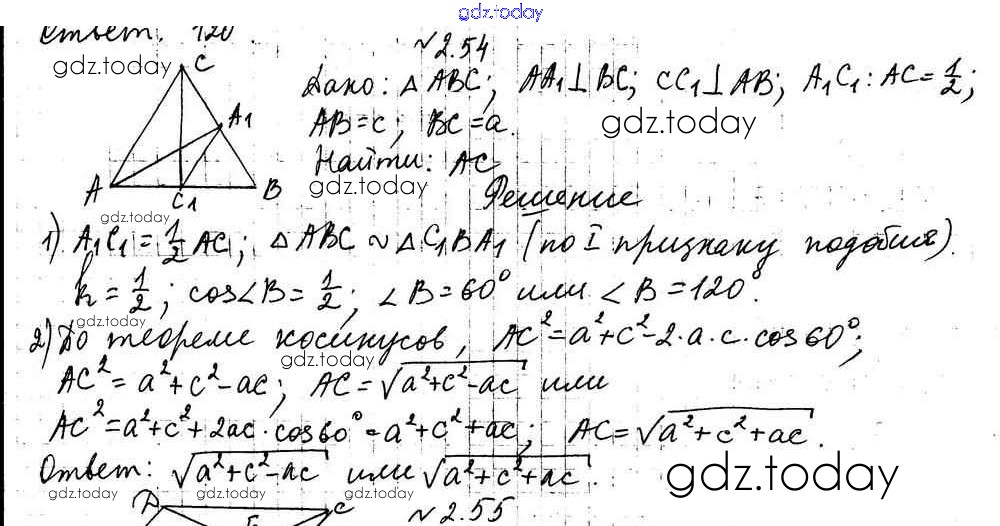 gdz.today
Ответ: 120°.
№2.54
gdz.today
C
Дано: △ABC; AA₁⊥BC; CC₁⊥AB; A₁C₁:AC=1/2;
A₁
AB=c; BC=a.
gdz.today
Найти: AC
A
C₁
B
gdz.today
Решение
gdz.today
1) A₁C₁=1/2 AC; △ABC ~ △C₁BA₁ (по I признаку подобия).
gdz.today
k=1/2; cos∠B=1/2; ∠B=60° или ∠B=120°.
gdz.today
2) По теореме косинусов, AC²=a²+c²-2·a·c·cos60°;
gdz.today
AC²=a²+c²-ac; AC=√(a²+c²-ac) или
gdz.today
AC²=a²+c²+2ac·cos60°=a²+c²+ac; AC=√(a²+c²+ac).
gdz.today
Ответ: √(a²+c²-ac) или √(a²+c²+ac).
gdz.today
gdz.today gdz.today gdz.today
C
№2.55